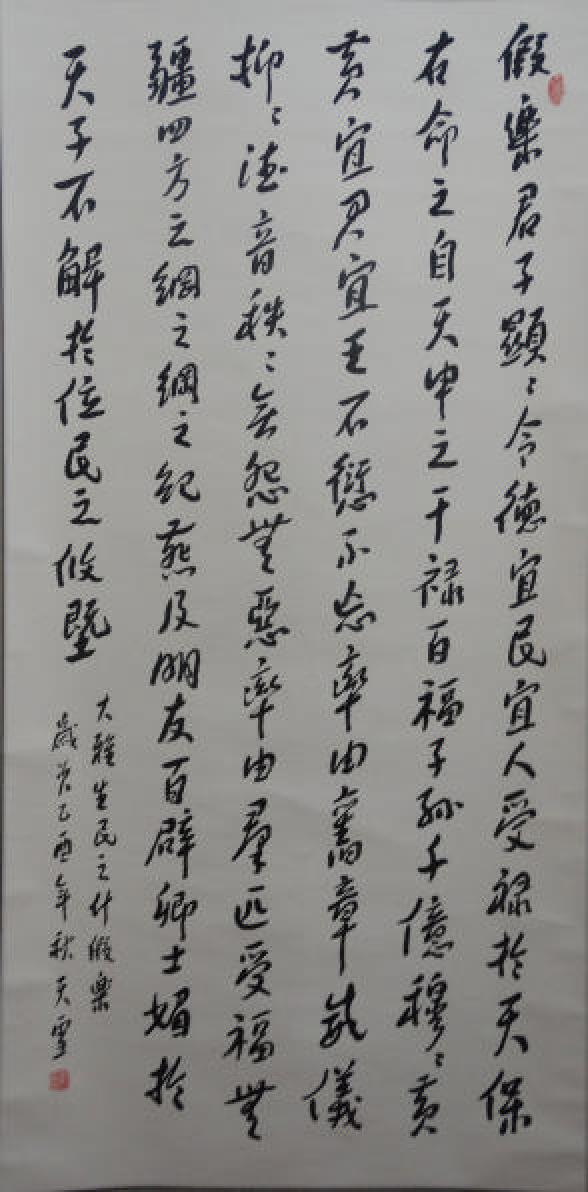 假樂君子顯〻令德宜民宜人受禄於天保
右命之自天申之干禄百福子孫千億穆〻黄
黄宜君宜王不愆不忘率由舊章威儀
抑〻德音秩〻無怨無惡率由羣匹受福無
疆四方之綱之綱之紀燕及朋友百辟卿士媚於
天子不解於位民之攸塈
大雅生民之什假樂
歲次乙酉年秋天